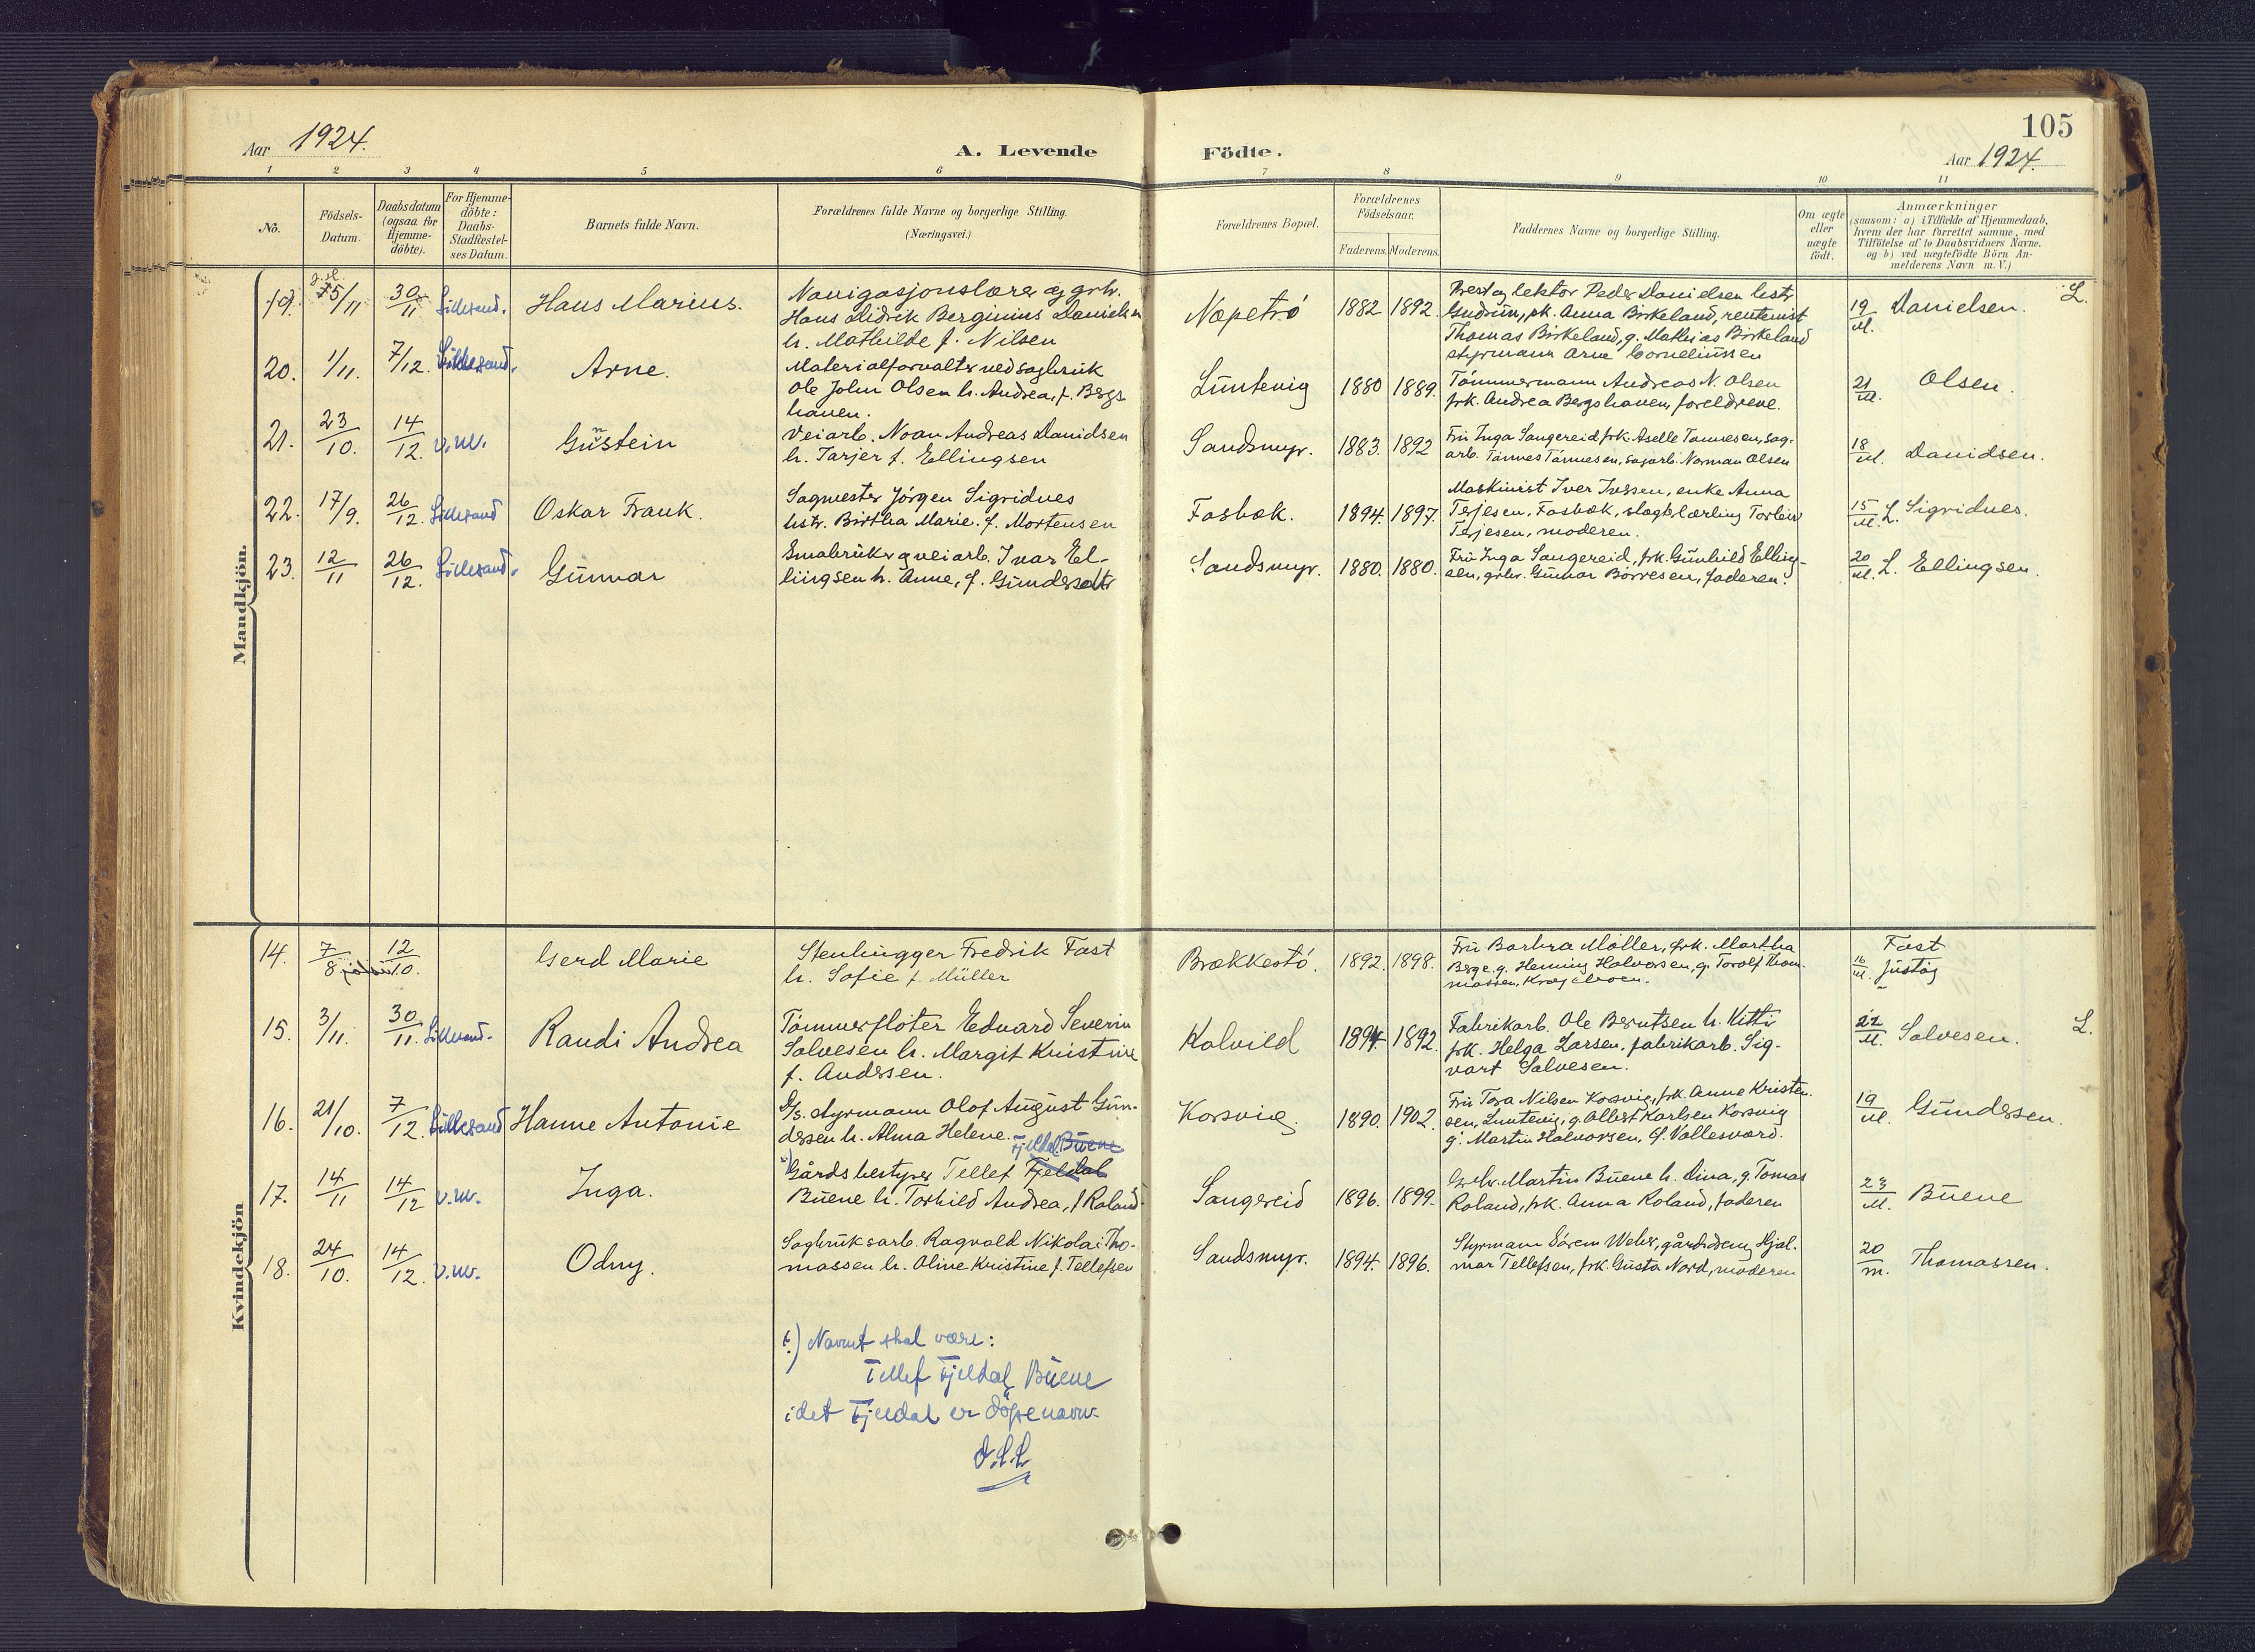 105
Aar 1924.
A. Levende Födte.
Aar 1924.
1 2 3 4 5 6 7 8 9 10 11
No.
Födsels-
Datum.
Daabsdatum
(ogsaa for
Hjemme-
döbte).
For Hjemme-
döbte:
Daabs-
Stadfæstel-
ses Datum.
Barnets fulde Navn.
Forældrenes fulde Navne og borgerlige Stilling.
(Næringsvei.)
Forældrenes Bopæl.
Forældrenes
Födselsaar.
Faderens. Moderens.
Faddernes Navne og borgerlige Stilling.
Om ægte
eller
uægte
födt.
Anmærkninger
(saasom: a) i Tilfælde af Hjemmedaab,
hvem der har forrettet samme, med
Tilföielse af to Daabsvidners Navne.
og b) ved uægtefödte Börn An-
melderens Navn m. V.)
Mandkjön.
19. 5/11 30/11 Lillesand. Hans Marius.
Navigasjonslærer og grbr.
Hans Didrik Berginius Danielsen
h. Mathilde f. Nilsen
Næpetrø 1882 1892.
Prest og lektor Peder Danielsen hstr
Gudrun, frk. Anna Birkeland, rentenist
Thomas Birkeland, g. Mathias Birkeland
styrmann Arne Corneliussen
19/M. Danielsen. L.
20. 1/11. 7/12. Lillesand. Arne.
Materialforvalter ved sagbruk
Ole John Olsen h. Andrea, f. Bergs
haven.
Luntevig 1880 1889.
Tømmermann Andreas N. Olsen
frk. Andrea Bergshaven, foreldrene.
21/M. Olsen.
21. 23/10. 14/12. v.m. Gunstein
Veiarb. Noan Andreas Davidsen
h. Tarjer f. Ellingsen
Sandsmyr. 1883. 1892
Fru Inga Sangereid frk. Aselle Tønnesen, sag-
arb. Tønnes Tønnesen, sagarb. Norman Olsen
18/M. Davidsen.
22. 17/9. 26/12. Lillesand Oskar Frank.
Sagmester Jørgen Sigridnes
hstr. Birtha Marie. f. Mortensen
Fosbæk. 1894. 1897.
Maskinist Iver Iversen, enke Anna
Terjesen, Fosbæk, slagterlærling Torleiv
Terjesen, moderen.
15/M. L. Sigridnes.
23. 12/11 26/12. Lillesand. Gunvar
Småbruker og veiarb. Ivar El-
lingsen h. Anne, f. Gundersdtr
Sandsmyr. 1880. 1880.
Fru Inga Sangereid, frk. Gunhild Elling-
sen, grbr. Gunvar Børresen, faderen.
20/M. L. Ellingsen.
Kvindekjön
14. 7/8 12/10. Gerd Marie
Stenhugger Fredrik Fast
h. Sofie f. Müller
Brækkestø. 1892. 1898.
Fru Barbra Møller, frk. Martha
Berge. g. Heming Halvorsen, g. Torolf Thom-
massen,
16/M. Fast
Justøy
15. 3/11. 30/11. Lillesand. Randi Andrea
Tømmerfløter Edvard Severin
Salvesen h. Margit Kristine
f. Andersen.
Kalvild 1894 1892.
Fabrikarb. Ole Berntsen h. Kitti
frk. Helga Larsen, fabrikarb. Sig-
vart Salvesen.
22/M. Salvesen. L.
16. 21/10. 7/12. Lillesand Hanne Antonie
D/s. styrmann Olof August Gun-
dersen h. Alma Helene.
Korsvig 1890. 1902.
Fru Tora Nilsen Korsvig, frk. Anne Kristen-
sen, Luntevig, g. Albert Karlsen Korsvig
g. Martin Halvorsen, f. Vallesværd.
19/M. Gundersen.
17. 14/11 14/12 v.m. Inga.
Fjeldal Buene
Gårdsbestyrer Tellef Fjeldal
Buene h. Torhild Andrea, f Roland
Sangereid 1896. 1899.
Grbr. Martin Buene h. Dina, g. Tomas
Roland, frk. Anna Roland, faderen
23/M. Buene
18. 24/10. 14/12. v.m. Odny.
Sagbruksarb. Ragvald Nikolai Tho-
massen h. Oline Kristine f. Tellefsen
Sandsmyr. 1894. 1896.
Styrmann Søren Weber, gårdsdreng Hjal-
mar Tellefsen, frk. Gusta Nord, moderen
20/m. Thomassen.
Navnet skal være:
Tellef Fjeldal Buene
idet Fjeldal er døpenavn.